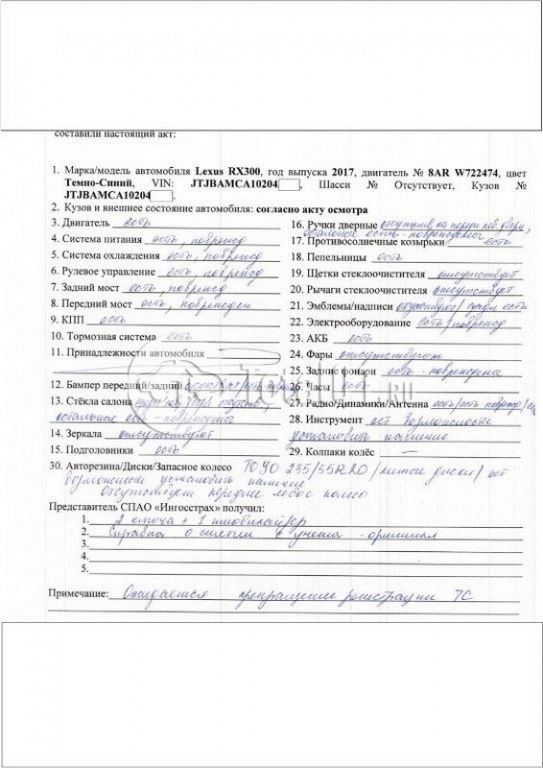 составили настоящий акт:
1. Марка/модель автомобиля Lexus RX300, год выпуска 2017, двигатель № 8AR W722474, цвет
Темно-Синий, VIN: JTJBAMCA10204 , Шасси № Отсутствует, Кузов №
JTJBAMCA10204 .
2. Кузов и внешнее состояние автомобиля: согласно акту осмотра
3. Двигатель есть
4. Система питания есть, поврежд
5. Система охлаждения есть, поврежд
6. Рулевое управление есть, поврежд
7. Задний мост есть, поврежд
8. Передний мост есть, поврежден
9. КПП есть
10. Тормозная система есть
11. Принадлежности автомобиля
12. Бампер передний/задний
13. Стёкла салона
остальные есть - повреждены
14. Зеркала отсутствуют
15. Подголовники есть
16. Ручки дверные отсутств на перед лев двери,
остальные есть - повреждены
17. Противосолнечные козырьки есть
18. Пепельницы есть
19. Щетки стеклоочистителя отсутствует
20. Рычаги стеклоочистителя отсутствует
21. Эмблемы/надписи отсутствуют / сзади есть
22. Электрооборудование есть / поврежд
23. АКБ есть
24. Фары отсутствуют
25. Задние фонари есть - повреждены
26. Часы есть
27. Радио/Динамики/Антенна есть/есть поврежд/
28. Инструмент нет возможности
установить наличие
29. Колпаки колёс —
30. Авторезина/Диски/Запасное колесо TOYO 235/55R20 / литые диски / нет
возможности установить наличие
Отсутствует переднее левое колесо
Представитель СПАО «Ингосстрах» получил:
1. 2 ключа + 1 иммобилайзер
2. Справка о снятии с учета - оригинал
3.
4.
5.
Примечание: Ожидается прекращение регистрации ТС